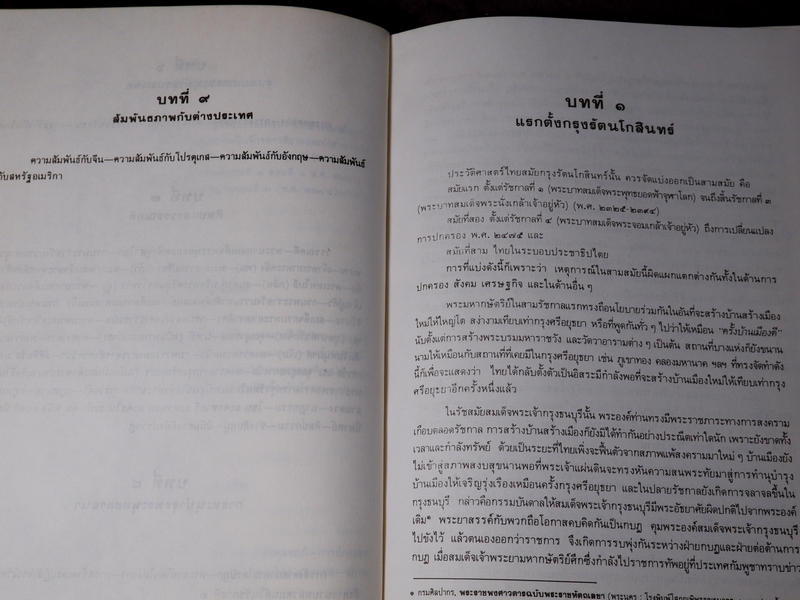 บทที่ ๙
สัมพันธภาพกับต่างประเทศ
ความสัมพันธ์กับจีน—ความสัมพันธ์กับโปรตุเกส—ความสัมพันธ์กับอังกฤษ—ความสัมพันธ์
กับสหรัฐอเมริกา
บทที่ ๑
แรกตั้งกรุงรัตนโกสินทร์
ประวัติศาสตร์ไทยสมัยกรุงรัตนโกสินทร์นั้น ควรจัดแบ่งออกเป็นสามสมัย คือ
สมัยแรก ตั้งแต่รัชกาลที่ ๑ (พระบาทสมเด็จพระพุทธยอดฟ้าจุฬาโลก) จนถึงสิ้นรัชกาลที่ ๓
(พระบาทสมเด็จพระนั่งเกล้าเจ้าอยู่หัว) (พ.ศ. ๒๓๒๕-๒๓๙๔)
สมัยที่สอง ตั้งแต่รัชกาลที่ ๔ (พระบาทสมเด็จพระจอมเกล้าเจ้าอยู่หัว) ถึงการเปลี่ยนแปลง
การปกครอง พ.ศ. ๒๔๗๕ และ
สมัยที่สาม ไทยในระบอบประชาธิปไตย
การที่แบ่งดังนี้ก็เพราะว่า เหตุการณ์ในสามสมัยนี้ผิดแผกแตกต่างกันทั้งในด้านการ
ปกครอง สังคม เศรษฐกิจ และในด้านอื่น ๆ
พระมหากษัตริย์ในสามรัชกาลแรกทรงถือนโยบายร่วมกันในอันที่จะสร้างบ้านสร้างเมือง
ใหม่ให้ใหญ่โต สง่างามเทียบเท่ากรุงศรีอยุธยา หรือที่พูดกันทั่ว ๆ ไปว่าให้เหมือน "ครั้งบ้านเมืองดี"
นับตั้งแต่การสร้างพระบรมมหาราชวัง และวัดวาอารามต่าง ๆ เป็นต้น สถานที่บางแห่งก็ยังขนาน
นามให้เหมือนกับสถานที่ที่เคยมีในกรุงศรีอยุธยา เช่น ภูเขาทอง คลองมหานาค ฯลฯ ที่ทรงจัดทำดัง
นี้ก็เพื่อจะแสดงว่า ไทยได้กลับตั้งตัวเป็นอิสระมีกำลังพอที่จะสร้างบ้านเมืองใหม่ให้เทียบเท่ากรุง
ศรีอยุธยาอีกครั้งหนึ่งแล้ว
ในรัชสมัยสมเด็จพระเจ้ากรุงธนบุรีนั้น พระองค์ท่านทรงมีพระราชภาระทางการสงคราม
เกือบตลอดรัชกาล การสร้างบ้านสร้างเมืองก็ยังมิได้ทำกันอย่างประณีตเท่าใดนัก เพราะยังขาดทั้ง
เวลาและกำลังทรัพย์ ด้วยเป็นระยะที่ไทยเพิ่งจะฟื้นตัวจากสภาพแพ้สงครามมาใหม่ ๆ บ้านเมืองยัง
ไม่เข้าสู่สภาพสงบสุขนานพอที่พระเจ้าแผ่นดินจะทรงหันความสนพระทัยมาสู่การทำนุบำรุง
บ้านเมืองให้เจริญรุ่งเรืองเหมือนครั้งกรุงศรีอยุธยา และในปลายรัชกาลยังเกิดการจลาจลขึ้นใน
กรุงธนบุรี กล่าวคือกรรมบันดาลให้สมเด็จพระเจ้ากรุงธนบุรีมีพระอัธยาศัยผิดปกติไปจากพระองค์
เดิม๑ พระยาสรรค์กับพวกถือโอกาสคบคิดกันเป็นกบฏ คุมพระองค์สมเด็จพระเจ้ากรุงธนบุรี
ไปขังไว้ แล้วตนเองออกว่าราชการ จึงเกิดการรบพุ่งกันระหว่างฝ่ายกบฏและฝ่ายต่อต้านการ
กบฏ เมื่อสมเด็จเจ้าพระยามหากษัตริย์ศึกซึ่งกำลังไปราชการทัพอยู่ที่ประเทศกัมพูชาทราบข่าว
๑ กรมศิลปากร, พระราชพงศาวดารฉบับพระราชหัตถเลขา (พระนคร :